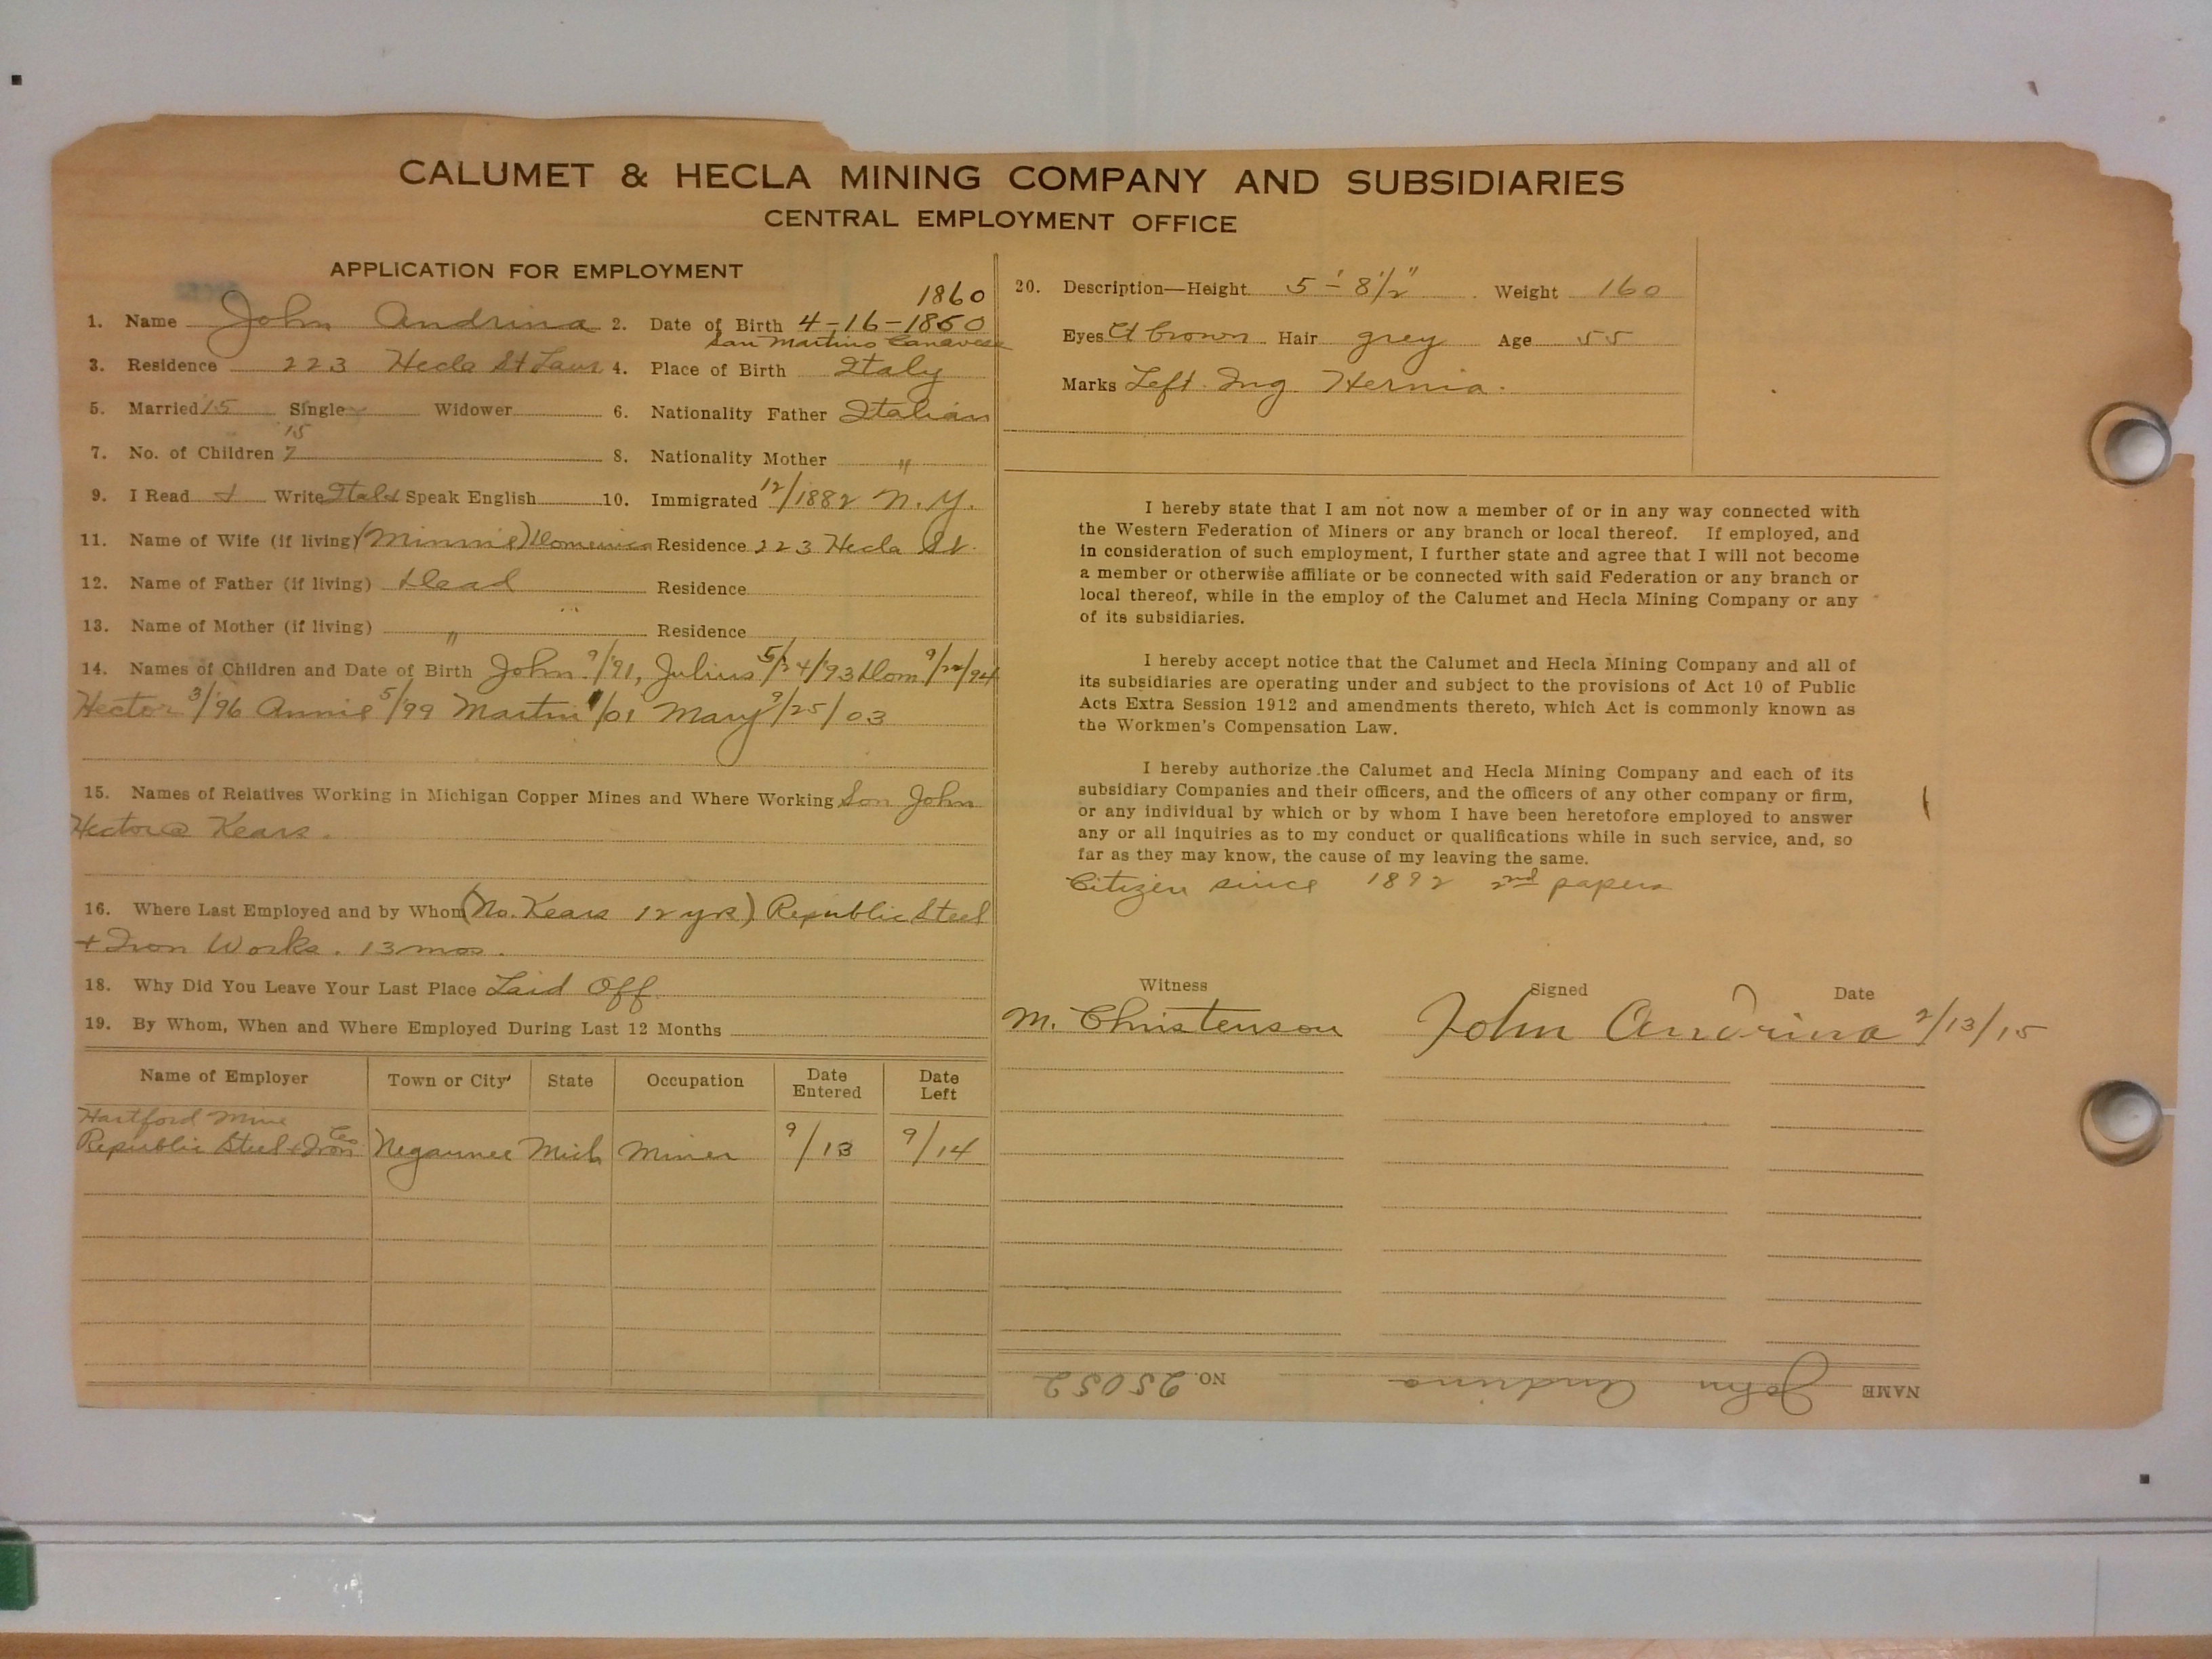 CALUMET & HECLA MINING COMPANY AND SUBSIDIARIES
CENTRAL EMPLOYMENT OFFICE
APPLICATION FOR EMPLOYMENT
1860
1. Name John Andrina 2. Date of Birth 4-16-1860
San Martino Canavese
3. Residence 223 Hecla St Laur 4. Place of Birth Italy
5. Married 15 Single Widower 6. Nationality Father Italian
15
7. No. of Children 7 8. Nationality Mother "
9. I Read Write Ital Speak English 10. Immigrated 12/1882 N.Y.
11. Name of Wife (if living) (Minnie) Domenica Residence 223 Hecla St.
12. Name of Father (if living) Dead Residence
13. Name of Mother (if living) " Residence
14. Names of Children and Date of Birth John 9/'91, Julius 5/24/'93 Dom 9/22/94
Hector 3/'96 Annie 5/99 Martin /01 Mary 9/25/03
15. Names of Relatives Working in Michigan Copper Mines and Where Working Son John
Hector @ Kears.
16. Where Last Employed and by Whom (No. Kears 12 yrs) Republic Steel
+ Iron Works. 13 mos.
18. Why Did You Leave Your Last Place Laid Off
19. By Whom, When and Where Employed During Last 12 Months
Name of Employer Town or City State Occupation Date Entered Date Left
Hartford Mine
Republic Steel & Iron Co Negaunee Mich Miner 9/13 9/14
20. Description—Height 5'-8 1/2" Weight 160
Eyes Lt brown Hair grey Age 55
Marks Left. Ing. Hernia.
I hereby state that I am not now a member of or in any way connected with
the Western Federation of Miners or any branch or local thereof. If employed, and
in consideration of such employment, I further state and agree that I will not become
a member or otherwise affiliate or be connected with said Federation or any branch or
local thereof, while in the employ of the Calumet and Hecla Mining Company or any
of its subsidiaries.
I hereby accept notice that the Calumet and Hecla Mining Company and all of
its subsidiaries are operating under and subject to the provisions of Act 10 of Public
Acts Extra Session 1912 and amendments thereto, which Act is commonly known as
the Workmen's Compensation Law.
I hereby authorize the Calumet and Hecla Mining Company and each of its
subsidiary Companies and their officers, and the officers of any other company or firm,
or any individual by which or by whom I have been heretofore employed to answer
any or all inquiries as to my conduct or qualifications while in such service, and, so
far as they may know, the cause of my leaving the same.
Citizen since 1892 2nd papers
Witness Signed Date
M. Christenson John Andrina 2/13/15
NAME John Andrina NO. 25052